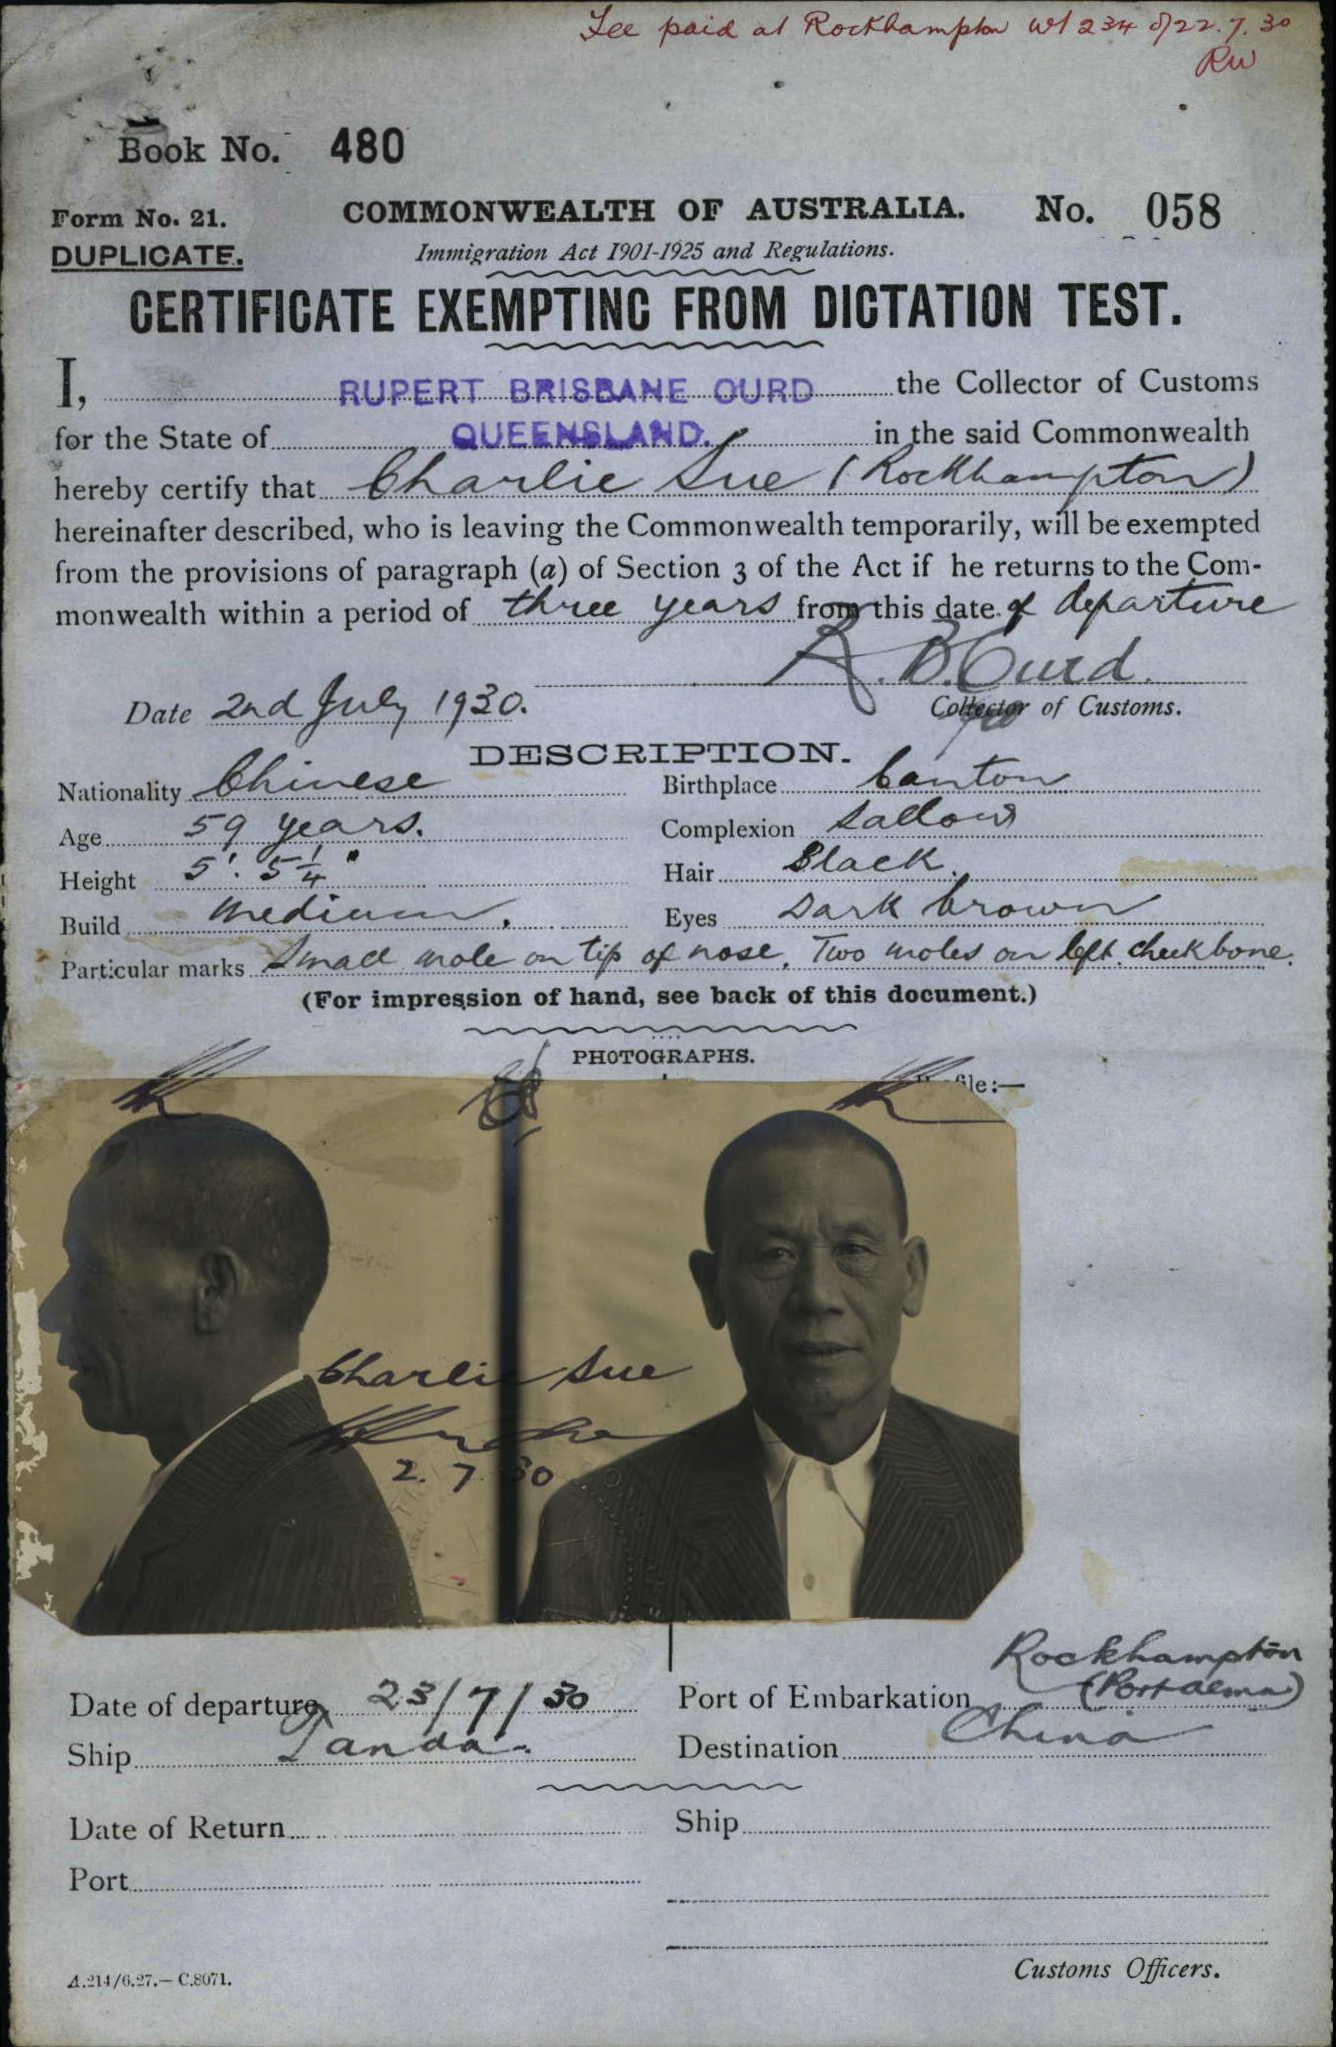 Fee paid at Rockhampton 234 of 22.7.30
RW
Book No. 480
Form No. 21. COMMONWEALTH OF AUSTRALIA. No. 058
DUPLICATE. Immigration Act 1901-1925 and Regulations.
CERTIFICATE EXEMPTING FROM DICTATION TEST.
I, RUPERT BRISBANE OURD the Collector of Customs
for the State of QUEENSLAND. in the said Commonwealth
hereby certify that Charlie Sue (Rockhampton)
hereinafter described, who is leaving the Commonwealth temporarily, will be exempted
from the provisions of paragraph (a) of Section 3 of the Act if he returns to the Com-
monwealth within a period of three years from this date of departure
R. B. Curd.
Date 2nd July 1930. Collector of Customs.
DESCRIPTION.
Nationality Chinese Birthplace Canton
Age 59 years. Complexion Sallow
Height 5'. 5 1/4" Hair Black.
Build Medium. Eyes Dark brown
Particular marks Small mole on tip of nose. Two moles on left cheek bone.
(For impression of hand, see back of this document.)
PHOTOGRAPHS.
Profile:—
Charlie Sue
2. 7. 30
Date of departure 23/7/30 Port of Embarkation Rockhampton (Port Alma)
Ship Tanda. Destination China
Date of Return Ship
Port
A.214/6.27.—C.8071. Customs Officers.